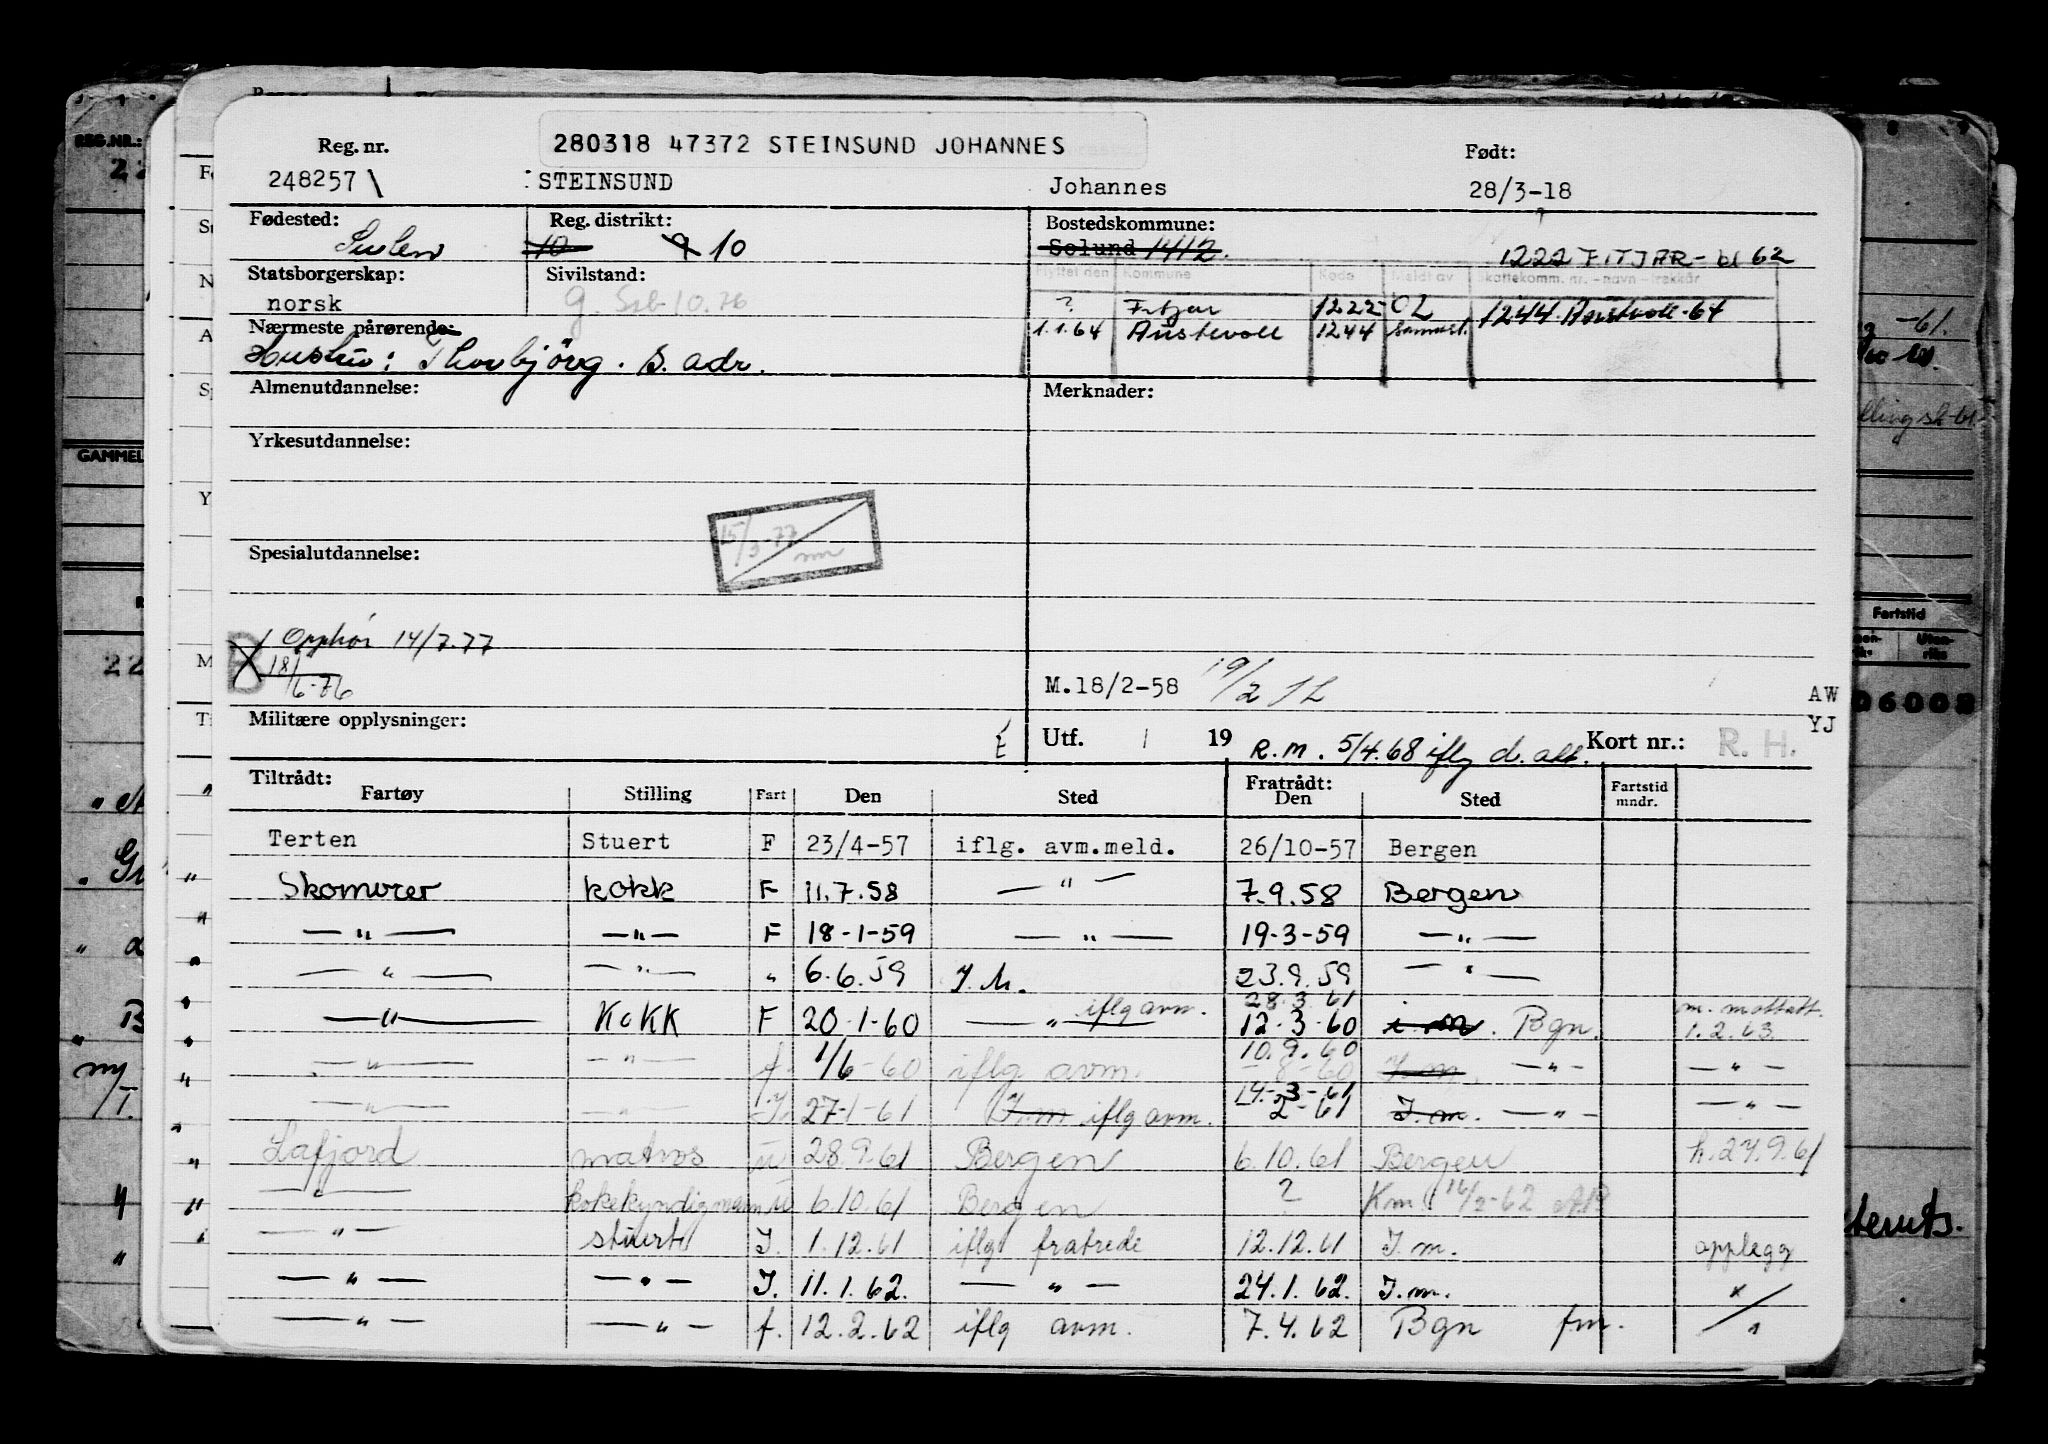 280318 47372 STEINSUND JOHANNES
Reg. nr. Født:
248257 STEINSUND Johannes 28/3-18
Fødested: Reg. distrikt: Bostedskommune:
Sulen 10 9 10 Solund 1412. 1222 FITJAR - bl 62
Statsborgerskap: Sivilstand: Flyttet den Kommune Kode Meldt av Skattekomm. nr. - navn - trekkår
norsk g. Ssb 10.76 ? Fitjar 1222 OL 1244 Austevoll - 64
Nærmeste pårørende: 1.1.64 Austevoll 1244
Hustru: Thorbjörg. s. adr.
Almenutdannelse: Merknader:
Yrkesutdannelse:
15/3-77
Spesialutdannelse:
Opphør 14/7.77
B 18/6-76 M.18/2-58 19/2 AW
Militære opplysninger: Utf. 19 R.M. 5/4.68 iflg d. att. Kort nr.: R. H. YJ
Tiltrådt: Fratrådt:
Fartøy Stilling Fart Den Sted Den Sted Fartstid mndr.
Terten Stuert F 23/4-57 iflg. avm.meld. 26/10-57 Bergen
Skomvær kokk F 11.7.58 — " — 7.9.58 Bergen
— " — — " — F 18-1-59 — " — 19-3-59 — " —
— " — — " — " 6.6.59 I.M. 23.9.59 — " —
— " — KOKK F 20-1-60 — " — iflg avm. 28.3.61 12-3-60 i.m. Bgn. m. mottatt. 1.2.63
— " — — " — f. 1/6-60 iflg avm. 10.9.60 -8-60 I.m. — " — — " —
— " — — " — I. 27-1-61 I.m iflg avm. 14-3-61 2-61 I.m. — " — — " —
Lafjord matros u 28.9.61 Bergen 6.10.61 Bergen h.27.9.61
— " — kokekyndig mann u 6.10.61 Bergen ? Km 16/2-62
— " — stuert I. 1.12.61 iflg fratrede 12.12.61 I.m. opplegg
— " — — " — I. 11.1.62. — " — 24.1.62. I.m.
— " — — " — f. 12.2.62 iflg avm. 7.4.62 Bgn fm.
REG.NR.:
GAMMEL
Fartstid
06008